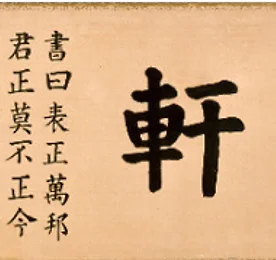 軒
書曰表正萬邦
君正莫不正今